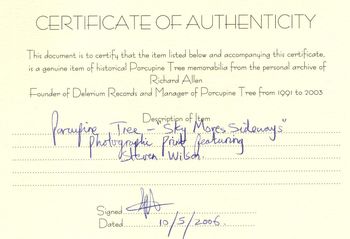 CERTIFICATE OF AUTHENTICITY
This document is to certify that the item listed below and accompanying this certificate,
is a genuine item of historical Porcupine Tree memorabilia from the personal archive of
Richard Allen
Founder of Delerium Records and Manager of Porcupine Tree from 1991 to 2003
Description of Item
Porcupine Tree - "Sky Moves Sideways"
Photographic Print featuring
Steven Wilson.
Signed
Dated 10/5/2006.